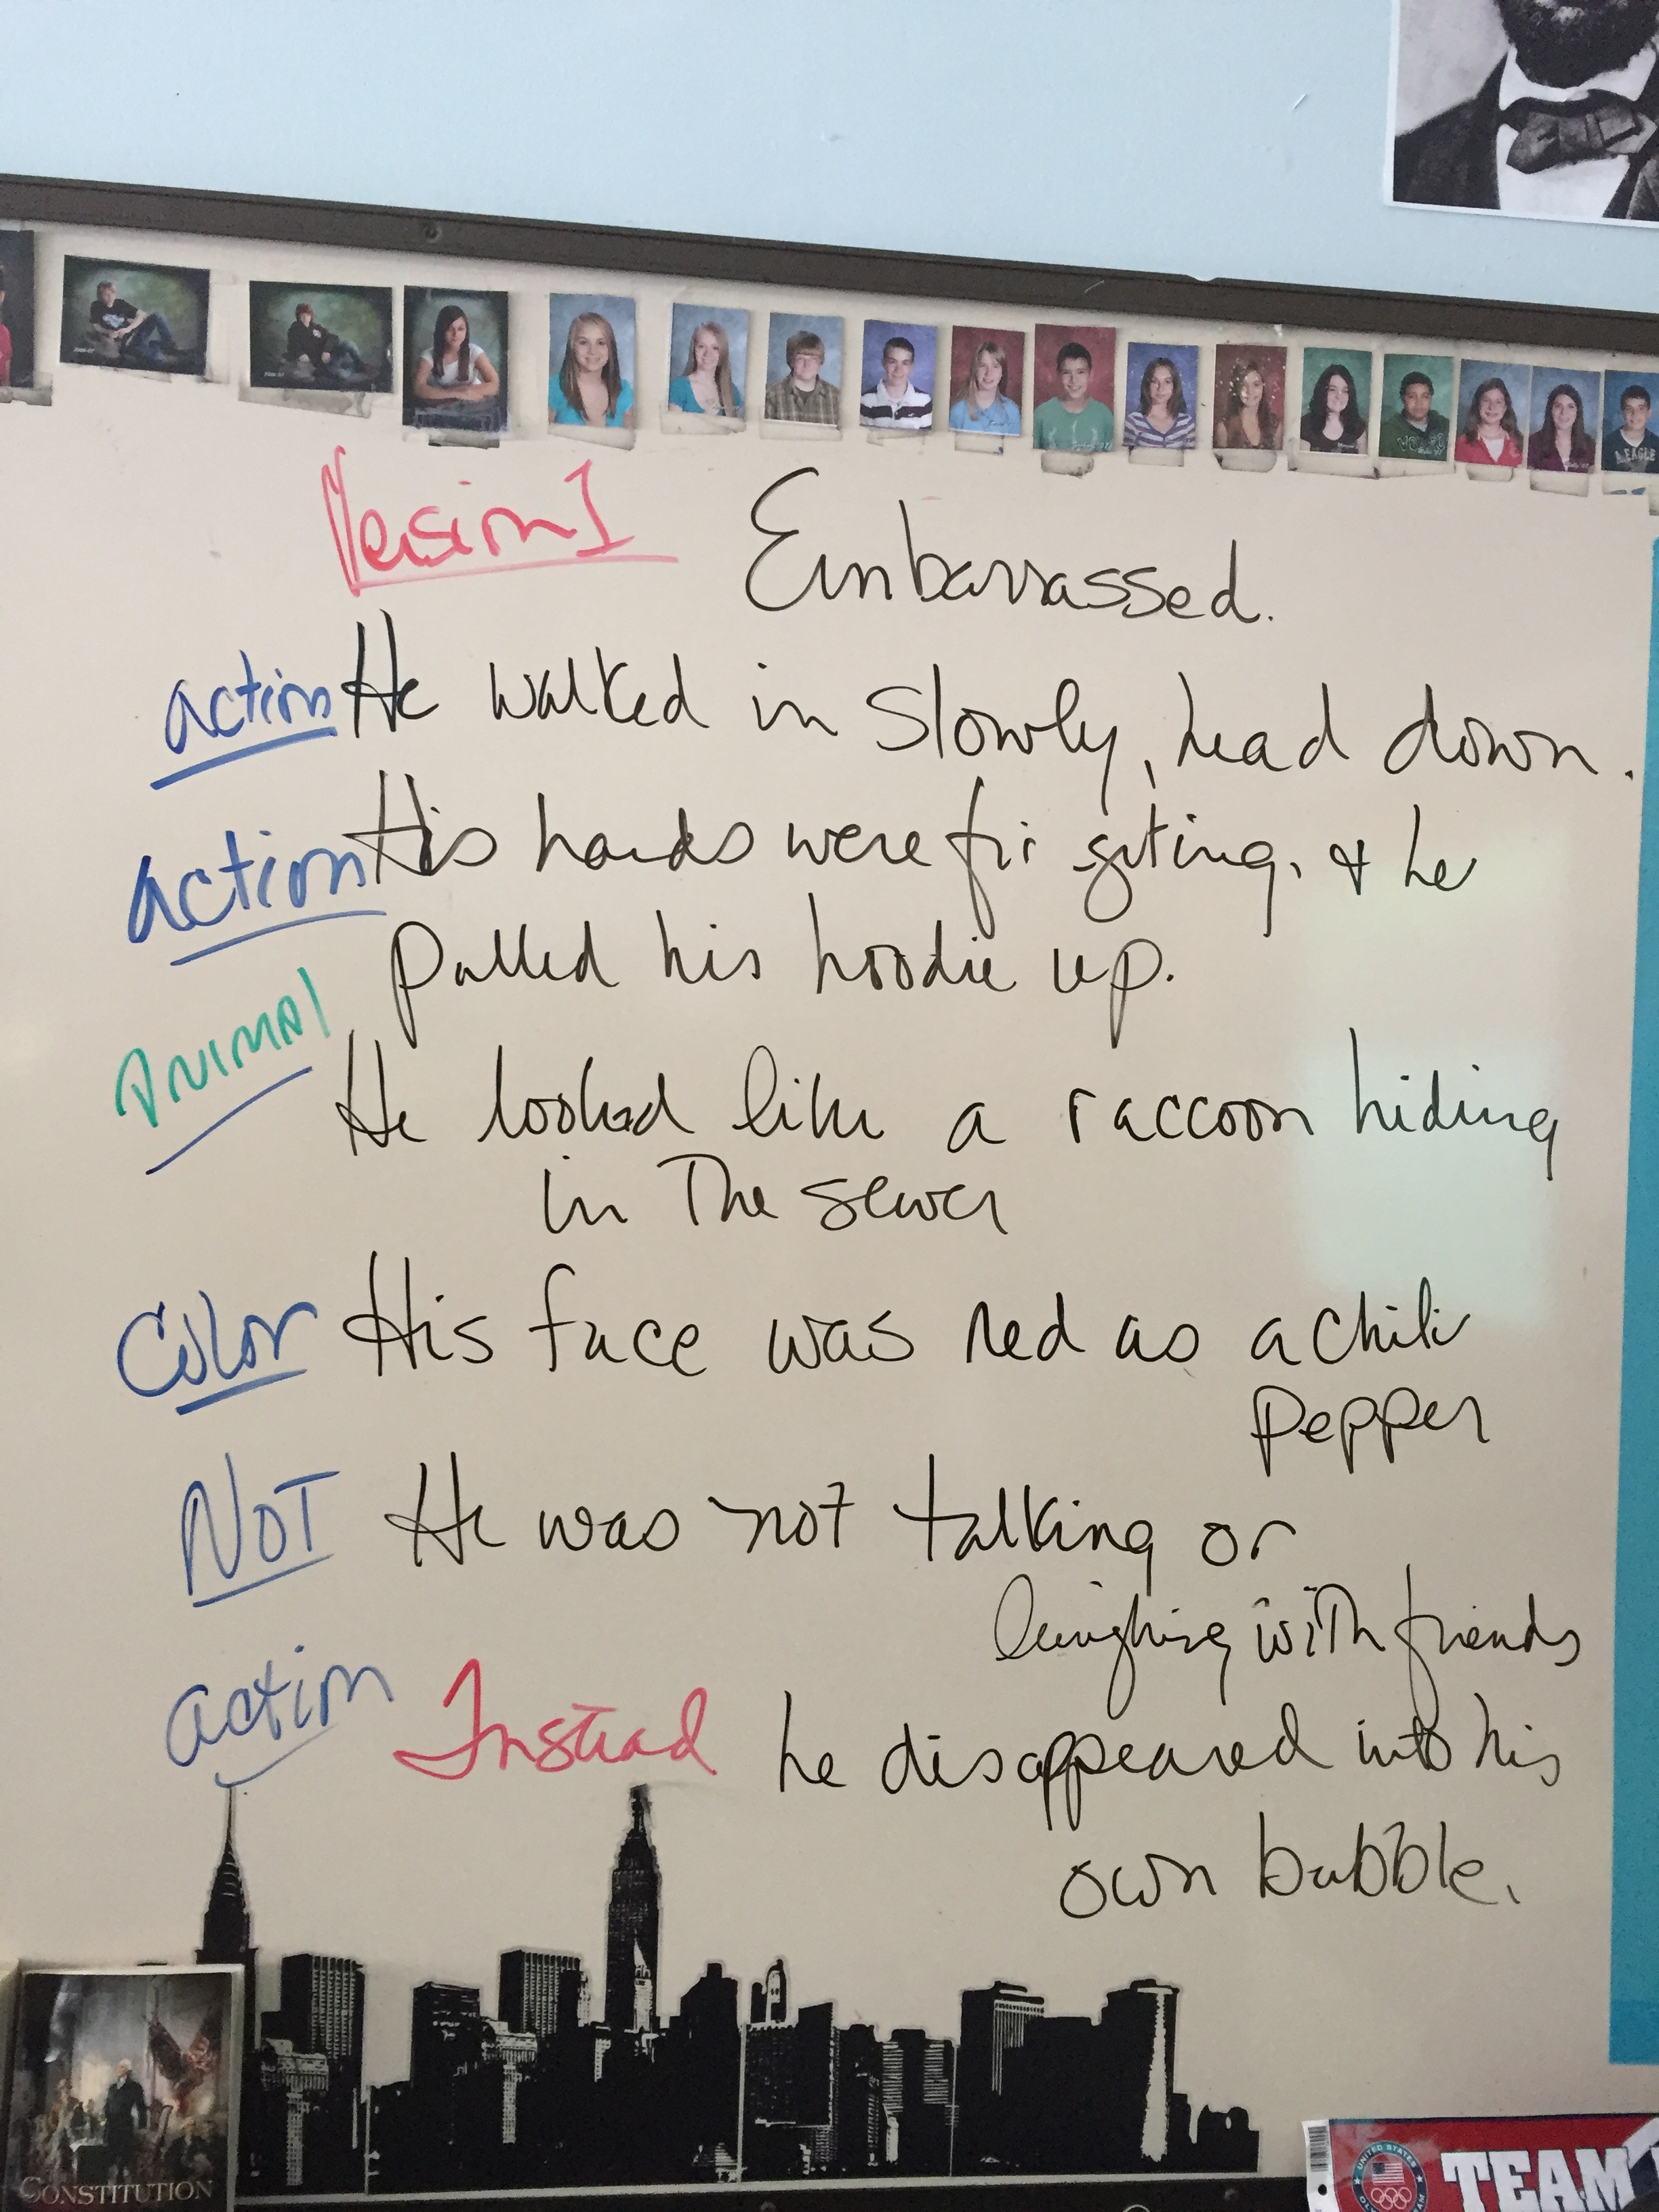 Version 1 Embarrassed.
action He walked in slowly, head down.
action His hands were fir giting, & he
pulled his hoodie up.
Animal
He looked like a raccoon hiding
in The sewer
Color His face was red as a chili
pepper
NOT He was not talking or
laughing with friends
action Instead he disappeared into his
own bubble.
CONSTITUTION
UNITED STATES
TEAM